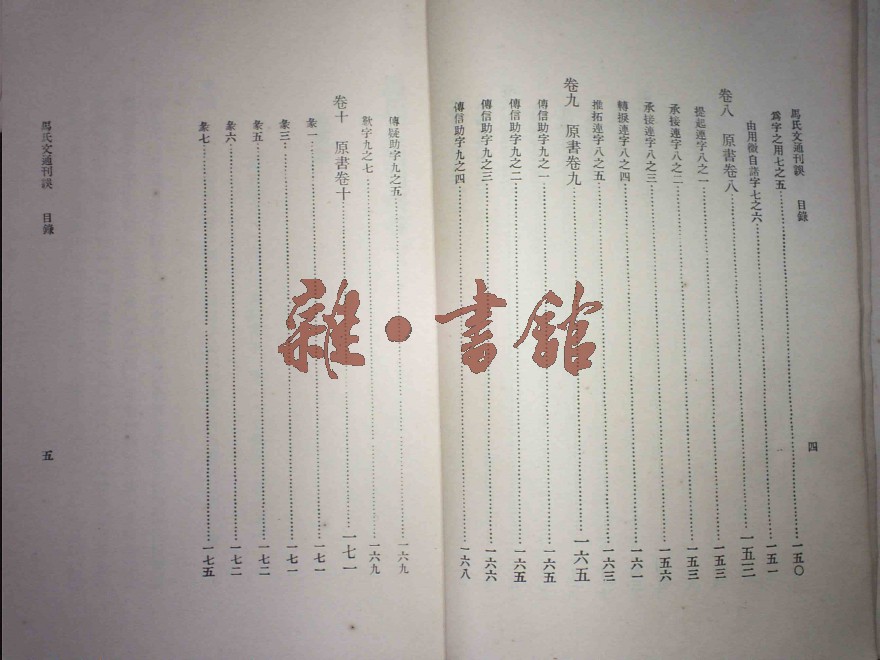 馬氏文通刊誤 目錄 四
爲字之用七之五 一五〇
由用微自諸字七之六 一五一
卷八 原書卷八 一五三
提起連字八之一 一五三
承接連字八之二 一五六
承接連字八之三 一六一
轉捩連字八之四 一六三
推拓連字八之五 一六五
卷九 原書卷九
傳信助字九之一 一六五
傳信助字九之二 一六五
傳信助字九之三 一六六
傳信助字九之四 一六八
傳疑助字九之五 一六九
歎字九之七 一六九
卷十 原書卷十 一七一
彖一 一七一
彖三 一七一
彖五 一七二
彖六 一七二
彖七 一七五
馬氏文通刊誤 目錄 五
雜·書館